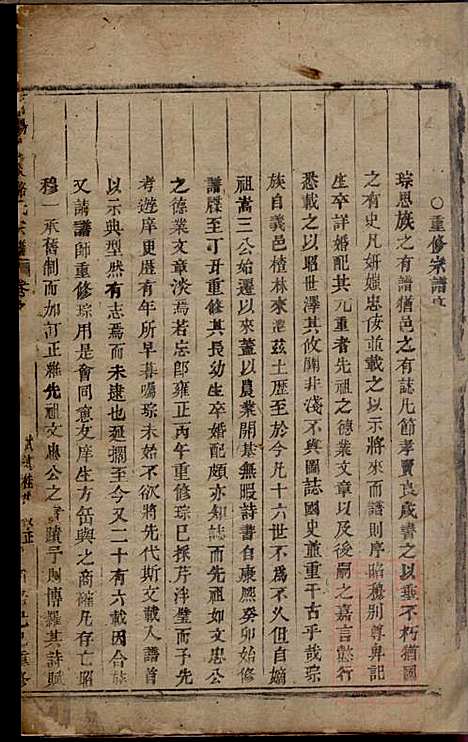 ○重修宗譜文
琮思族之有譜猶邑之有誌凡節孝賢良咸書之以垂不朽猶國
之有史凡妍媸忠佞並載之以示將來而譜則序昭穆別尊卑記
生卒詳婚配其尤重者先祖之德業文章以及後嗣之嘉言懿行
悉載之以昭世澤其攸關非淺不與圖誌國史並重千古乎哉琮
族自義邑楂林來遷茲土歷至於今凡十六世不為不久矣但自嫡
祖嵩三公始遷以來蓋以農業開基無暇詩書自康熙癸卯始修
譜牒至丁丑重修其長幼生卒婚配頗亦知誌而先祖如文忠公
之德業文章淡焉若忘即雍正丙午重修琮巳採芹泮璧而先
考遊庠更歷有年所早暮囑琮未始不欲將先代斯文載入譜首
以示典型然有志焉而未逮也延擱至今又二十有六載因合族
又請譜師重修琮用是會同愈友庠生方岳與之商確凡存亡昭
穆一承舊制而加訂正雖先祖文忠公之實蹟予則博羅其詩賦